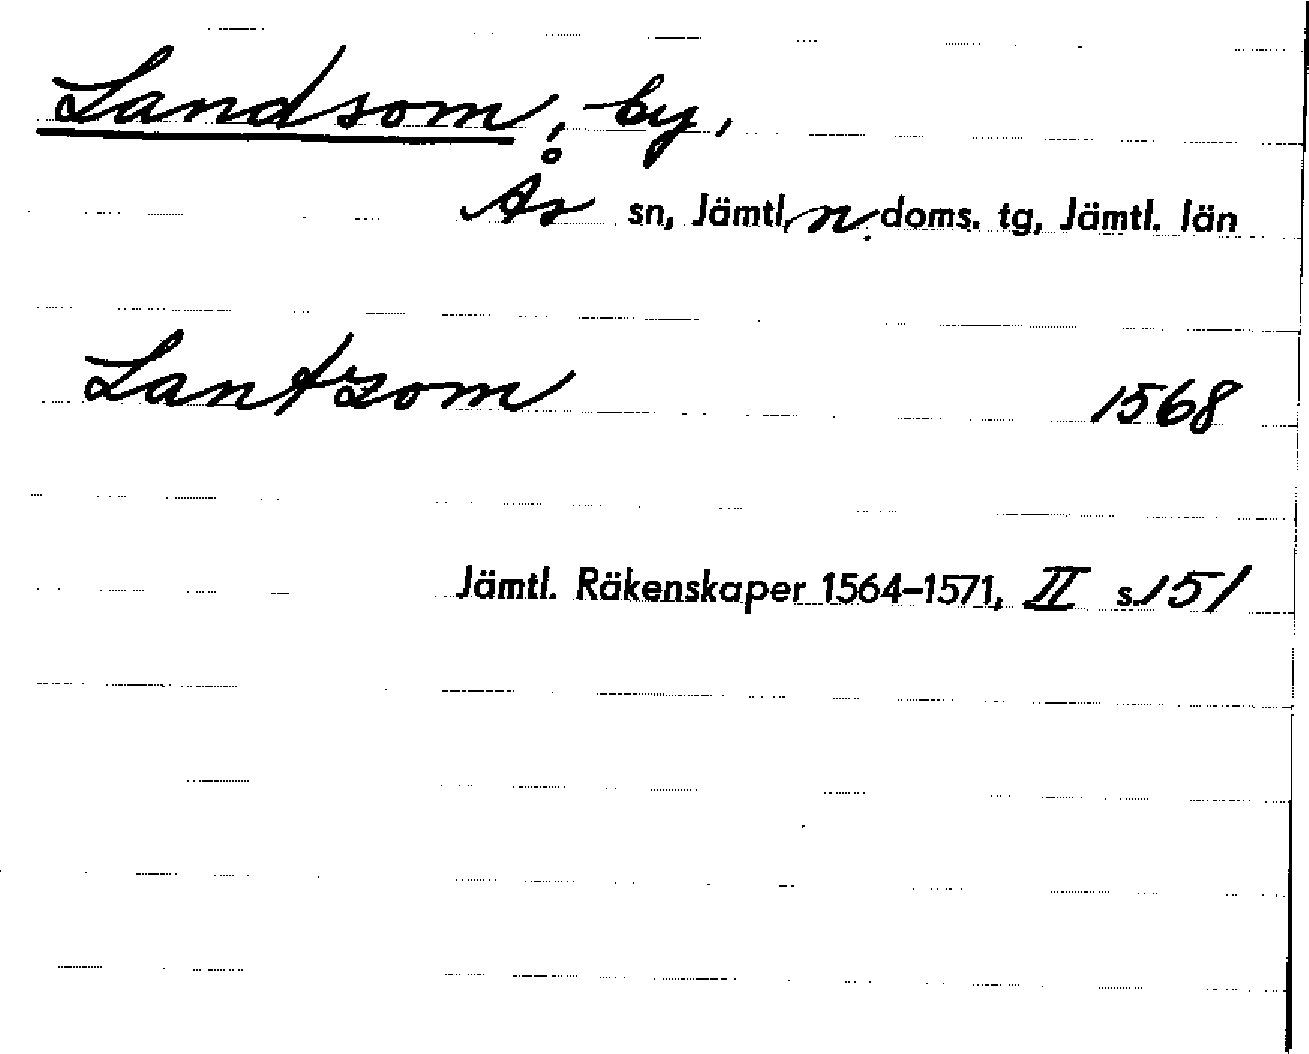 Landsom, by,
Ås sn, Jämtl. n. doms. tg, Jämtl. län
Lantzom 1568
Jämtl. Räkenskaper 1564–1571, II s. 151